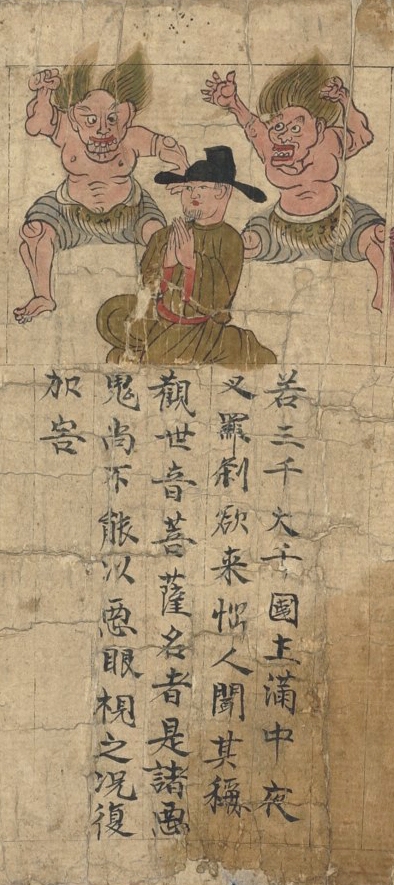 若三千大千國土滿中夜
叉羅刹欲来惱人聞其稱
觀世音菩薩名者是諸惡
鬼尚不能以惡眼視之况復
加害